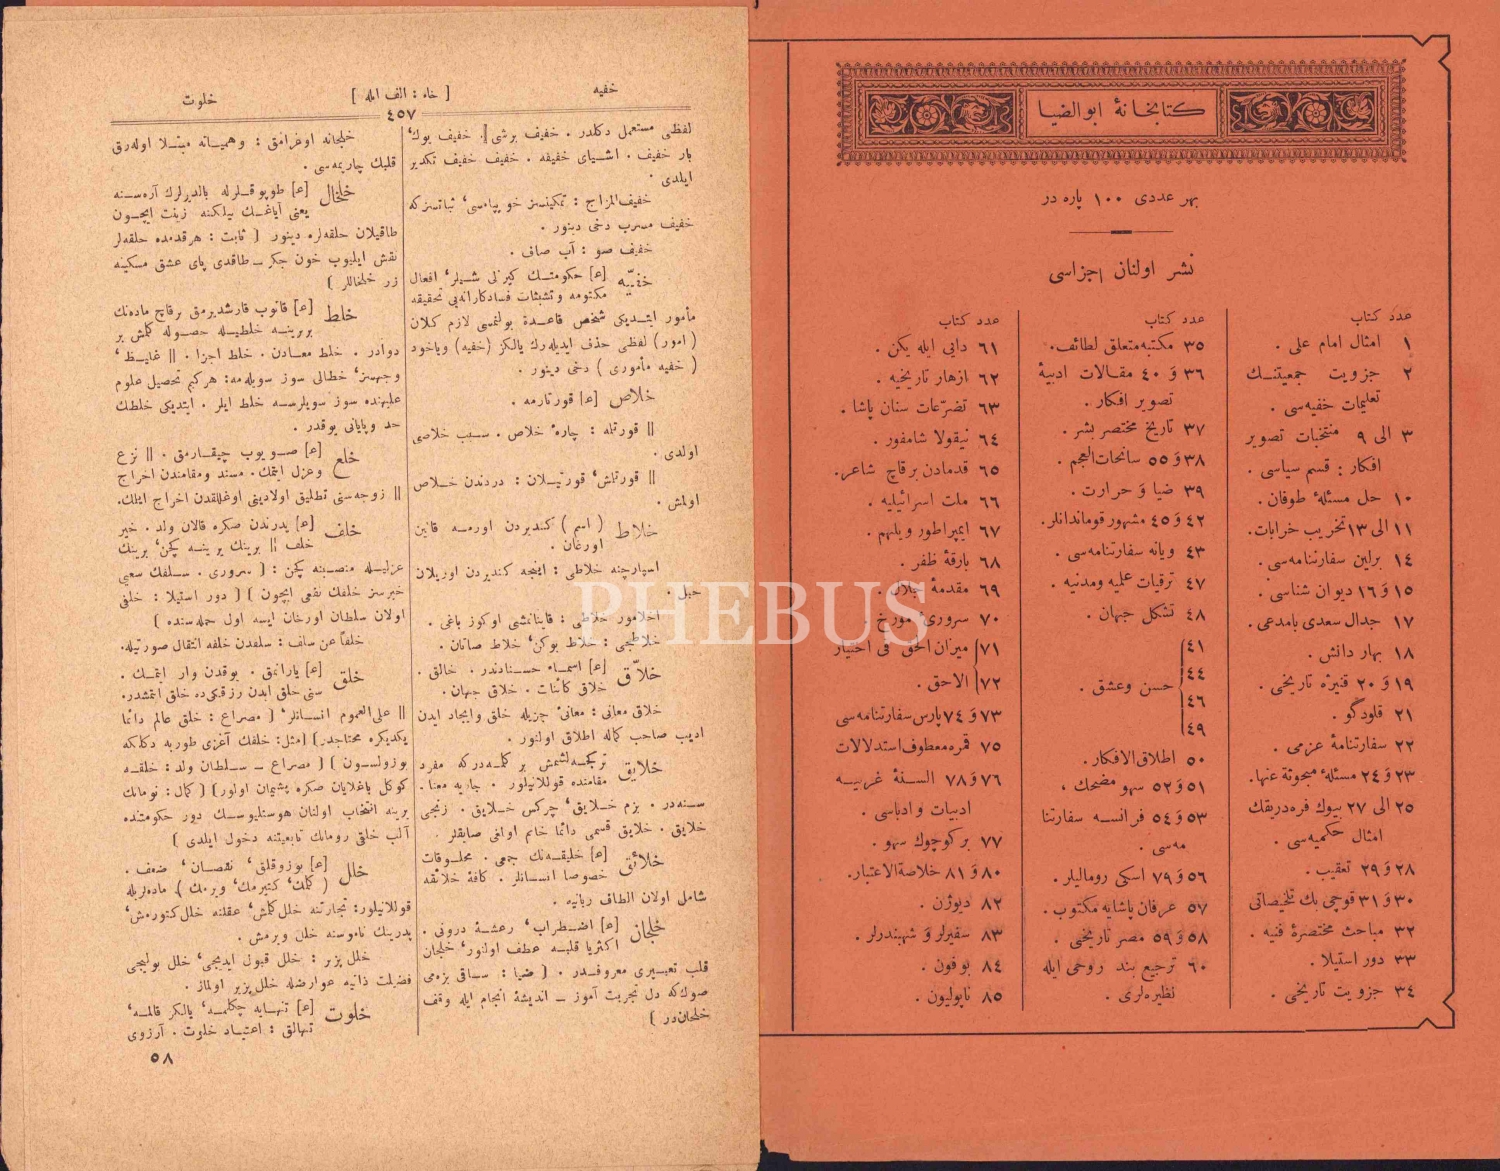 خفیه
[ خاء : الف امله ]
خلوت
٤٥٧
لفظی مستعمل دكلدر . خفیف برشی . خفیف بوك،
بار خفیف . اشیای خفیفه . خفیف خفیف تكدیر
ایلدی .
خفیف‌المزاج : تمكینسز خویپامسی، ثباتسزكه
خفیف مشرب دخی دینور .
خفیف صو : آب صاف .
خفیّه [ع] حكومتك كیزلی شیلر، افعال
مكتومه و تشبثات فسادكارانه‌یی تحقیقه
مأمور ایتدیكی شخص قاعدة بولنمسی لازم كلان
( امور ) لفظی حذف ایدیله‌رك یالكز (خفیه) ویاخود
( خفیه مأموری ) دخی دینور .
خلاص [ع] قورتارمه .
|| قورتلمه : چارهٔ خلاص . سبب خلاصی
اولدی .
|| قورتلمش، قورتیلان : دردندن خلاص
اولمش .
خلاط ( اسم ) كندیردن اورمه قالین
اورغان .
اسپارچنه خلاطی : اینجه كندیردن اوریلان
حبل .
اخلامور خلاطی : قابنانمشی اوكوز باغی .
خلاطجی : خلاط بوكن، خلاط صاتان .
خلاّق [ع] اسماء حسنادندر . خالق .
خلاق كائنات . خلاق جهان .
خلاق معانی : معانئ جزیله خلق وایجاد ایدن
ادیب صاحب كماله اطلاق اولنور .
خلایق تركجه‌لشمش بر كلمه‌دركه مفرد
مقامنده قوللانیلور . جاریه معنا
سنه‌در . بزم خلایق، چركس خلایق . زنجی
خلایق . خلایق قسمی دائما خانم اولغی صایقلر .
خلائق [ع] خلیقه‌نك جمعی . مخلوقات
خصوصا انسانلر . كافهٔ خلائقه
شامل اولان الطاف ربانیه .
خلجان [ع] اضطراب، رعشهٔ درونی .
اكثریا قلبه عطف اولنور، خلجان
قلب تعبیری معروفدر . ( ضیا : ساقی بزمی
صوك‌كه دل تجربت آموز ـ اندیشهٔ انجام ایله وقف
خلجان‌در )
خلجانه اوغرامق : وهمیانه مبتلا اوله‌رق
قلبك چارپمه‌سی .
خلخال [ع] طوپوقلرله بالدیرلرك آره‌سنه
یعنی آیاغك بیلكنه زینت ایچون
طاقیلان حلقه‌لره دینور ( ثابت : هرقدمده حلقه‌لر
نقش ایلیوب خون جكر ـ طاقدی پای عشق مسكینه
زر خلخاللر )
خلط [ع] قانوب قارشدیرمق برقاچ ماده‌نك
بربرینه خلطیله حصوله كلمش بر
دوادر . خلط معادن . خلط اجزا . || غلیظ،
وجهسز، خطالی سوز سویله‌مه: هركیم تحصیل علوم
علیهنده سوز سویلرسه خلط ایلر . ایتدیكی خلطك
حد وپایانی یوقدر .
خلع [ع] صویوب چیقارمق . || نزع
وعزل ایتمك . مسند ومقامندن اخراج
|| زوجه‌سنی تطلیق اولادینی اوغللقدن اخراج ایتمك.
خلف [ع] پدرندن صكره قالان ولد . خیر
خلف || برینك یرینه كچن، برینك
عزلیله منصبنه كچن : ( سروری . سلفك سعیی
خیرسز خلفك نفعی ایچون ) ( دور استیلا : خلفی
اولان سلطان اورخان ایسه اول حمله‌سنده )
خلفاً عن سلف : سلفدن خلفه انتقال صورتیله.
خلق [ع] یارانمق . یوقدن وار ایتمك .
سنی خلق ایدن رزقكی‌ده خلق ایتمشدر.
|| علی‌العموم انسانلر، ( مصراع : خلق عالم دائما
یكدیكره محتاجدر) (مثل: خلقك آغزی طوربه دكلكه
بوزولسون ) ( مصراع ـ سلطان ولد : خلقه
كوكل باغلایان صكره پشیمان اولور) (كمال : نومانك
یرینه انتخاب اولنان هوستیلیوسك دور حكومتنده
آلب خلقی رومانك تابعیتنه دخول ایلدی )
خلل [ع] بوزوقلق، نقصان، ضعف .
( كلمك، كتیرمك، ویرمك ) ماده‌لریله
قوللانیلور: تجارتنه خلل كلمش، عقلنه خلل كتورمش،
پدرینك ناموسنه خلل ویرمش .
خلل پزیر : خلل قبول ایدیجی، خلل بولیجی
فضیلت ذاتیه عوارضله خلل پزیر اولماز .
خلوت [ع] تنهایه چكلمه، یالكز قالمه،
تنهالق : اعتیاد خلوت . آرزوی
٥٨
كتابخانهٔ ابوالضیا
بهر عددی ١٠٠ پاره در
نشر اولنان اجزاسی
عدد كتاب
١ امثال امام علی .
٢ جزویت جمعیتنك
تعلیمات خفیه‌سی .
٣ الی ٩ منتخبات تصویر
افكار : قسم سیاسی .
١٠ حل مسئلهٔ طوفان .
١١ الی ١٣ تخریب خرابات.
١٤ برلین سفارتنامه‌سی .
١٥ و ١٦ دیوان شناسی .
١٧ جدال سعدی بامدعی .
١٨ بهار دانش .
١٩ و ٢٠ قنیژه تاریخی .
٢١ قلودكو .
٢٢ سفارتنامهٔ عزمی .
٢٣ و ٢٤ مسئلهٔ مبحوثة عنها.
٢٥ الی ٢٧ بیوك فره‌دریقك
امثال حكمیه‌سی .
٢٨ و ٢٩ تعقیب .
٣٠ و ٣١ قوچی بك تلخیصاتی
٣٢ مباحث مختصرهٔ فنیه .
٣٣ دور استیلا .
٣٤ جزویت تاریخی .
عدد كتاب
٣٥ مكتبه متعلق لطائف.
٣٦ و ٤٠ مقالات ادبیهٔ
تصویر افكار .
٣٧ تاریخ مختصر بشر .
٣٨ و ٥٥ سانحات‌العجم .
٣٩ ضیا و حرارت .
٤٢ و ٤٥ مشهور قوماندانلر.
٤٣ ویانه سفارتنامه‌سی .
٤٧ ترقیات علمیه ومدنیه .
٤٨ تشكل جهان .
٤١
٤٤
٤٦
٤٩
حسن وعشق .
٥٠ اطلاق الافكار .
٥١ و ٥٢ سهو مضحك ،
٥٣ و ٥٤ فرانسه سفارتنا
مه‌سی .
٥٦ و ٧٩ اسكی رومالیلر .
٥٧ عرفان پاشایه مكتوب .
٥٨ و ٥٩ مصر تاریخی .
٦٠ ترجیع بند روحی ایله
نظیره‌لری .
عدد كتاب
٦١ دابی ایله یكن .
٦٢ ازهار تاریخیه .
٦٣ تضرّعات سنان پاشا .
٦٤ نیقولا شامفور .
٦٥ قدمادن برقاچ شاعر.
٦٦ ملت اسرائیلیه .
٦٧ ایمپراطور ویلهم .
٦٨ بارقهٔ ظفر .
٦٩ مقدمهٔ جلال .
٧٠ سروری مورخ .
٧١
٧٢
میزان الحق فی اختیار
الاحق .
٧٣ و ٧٤ پارس سفارتنامه‌سی
٧٥ قمره معطوف استدلالات
٧٦ و ٧٨ السنهٔ غربیه
ادبیات و ادباسی .
٧٧ بر كوچوك سهو .
٨٠ و ٨١ خلاصة‌الاعتبار.
٨٢ دیوژن .
٨٣ سفیرلر و شهبندرلر .
٨٤ بوفون .
٨٥ ناپولیون .
PHEBUS